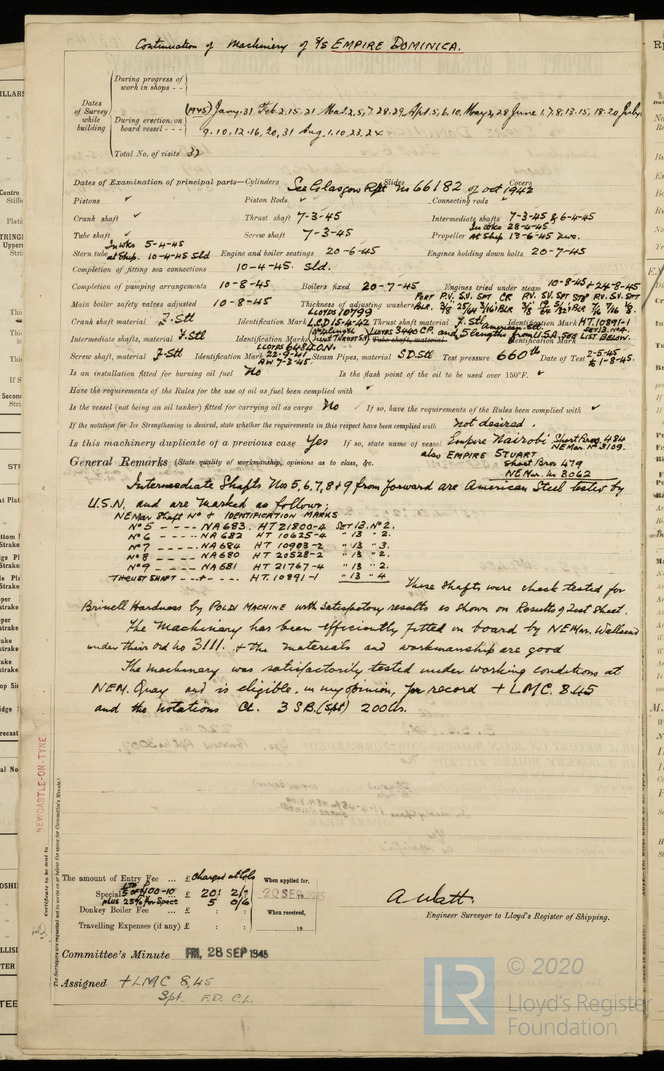 Continuation of Machinery of S/S EMPIRE DOMINICA.
Dates of Survey while building
During progress of work in shops - -
During erection on board vessel - - -
(1945) Jany. 31 Feb. 2. 15. 21 Mar. 2. 5. 7. 28. 29 Apl. 5. 6. 10. May 2. 28 June 1. 7. 8. 13. 15. 18. 20 July
9. 10. 12. 16. 20. 31 Aug. 1. 10. 23. 24
Total No. of visits 32
Dates of Examination of principal parts—Cylinders See Glasgow Rpt No 66182 of Oct 1942 Slides Covers
Pistons ✓ Piston Rods ✓ Connecting rods ✓
Crank shaft ✓ Thrust shaft 7-3-45 Intermediate shafts 7-3-45 & 6-4-45
Tube shaft ✓ Screw shaft 7-3-45 Propeller In Wks 28-4-45 at Ship.
Stern tube In Wks 5-4-45 at Ship. 10-4-45 Sld Engine and boiler seatings 20-6-45 Engines holding down bolts 20-7-45
Completion of fitting sea connections 10-4-45. Sld.
Completion of pumping arrangements 10-8-45 Boilers fixed 20-7-45 Engines tried under steam 10-8-45 + 24-8-45
Main boiler safety valves adjusted 10-8-45 Thickness of adjusting washers PORT BLR. P.V. S.V. SPT
Crank shaft material I. Stl Identification Mark LLOYDS 10799 L.C.D 15-4-42 Thrust shaft material I. Stl Identification Mark HT. 10891-1
Intermediate shafts, material I. Stl Identification Marks LLOYDS 3440 CR and 5 lengths American Stl from U.S.A. SEE LIST BELOW. Tube shaft, material Identification Mark
Screw shaft, material I. Stl Identification Mark LLOYDS 6481 LON. 22-9-41 AW 7-3-45 Steam Pipes, material S.D. Stl Test pressure 660 lb Date of Test 2-5-45 to 1-8-45.
Is an installation fitted for burning oil fuel No Is the flash point of the oil to be used over 150°F. ✓
Have the requirements of the Rules for the use of oil as fuel been complied with ✓
Is the vessel (not being an oil tanker) fitted for carrying oil as cargo No If so, have the requirements of the Rules been complied with ✓
If the notation for Ice Strengthening is desired, state whether the requirements in this respect have been complied with Not desired.
Is this machinery duplicate of a previous case Yes If so, state name of vessel Empire Nairobi Short Bros. 484 NE Mar. No 3109.
also EMPIRE STUART Short Bros 479 NE Mar. No 3062
General Remarks (State quality of workmanship, opinions as to class, &c.
Intermediate Shafts Nos 5, 6, 7, 8 + 9 from forward are American Steel tested by
U.S.N. and are marked as follows;
NE Mar Shaft No + IDENTIFICATION MARKS
No 5 - - - - - NA 683. HT 21800-4 SET 13. No 2.
No 6 - - - - - NA 682 HT 10625-4 " 13 " 2.
No 7 - - - - - NA 684 HT 10903-2 " 13 " 3.
No 8 - - - - - NA 680 HT 20528-2 " 13 " 2.
No 9 - - - - - NA 681 HT 21767-4 " 13 " 2.
THRUST SHAFT - - + - - - - HT. 10891-1 " 13 " 4
These shafts were check tested for
Brinell Hardness by POLDI MACHINE with satisfactory results as shown on Results of Test Sheet.
The Machinery has been efficiently fitted on board by NE Mar. Wallsend
under their Ord No 3111. + the materials and workmanship are good
The machinery was satisfactorily tested under working conditions at
NEM. Quay and is eligible, in my opinion, for record + LMC. 8.45
and the notations CL. 3 SB. (Spt) 200 lbs.
NEWCASTLE-ON-TYNE
Certificate to be sent to
The amount of Entry Fee ... £ charged at Gls When applied for,
Special £ 20 : 2/- 20 SEP 1945
plus 25% for Spec 5 0/6
Donkey Boiler Fee ... £ : : When received,
Travelling Expenses (if any) £ : : 19
A. Watt.
Engineer Surveyor to Lloyd's Register of Shipping.
Committee's Minute FRI. 28 SEP 1945
Assigned + LMC 8,45
Spt. F.D. C.L.
LR
© 2020
Lloyd's Register
Foundation